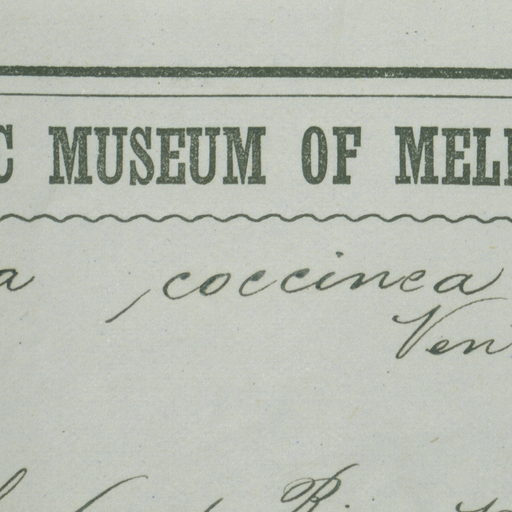 C MUSEUM OF MEL
a coccinea
Vent